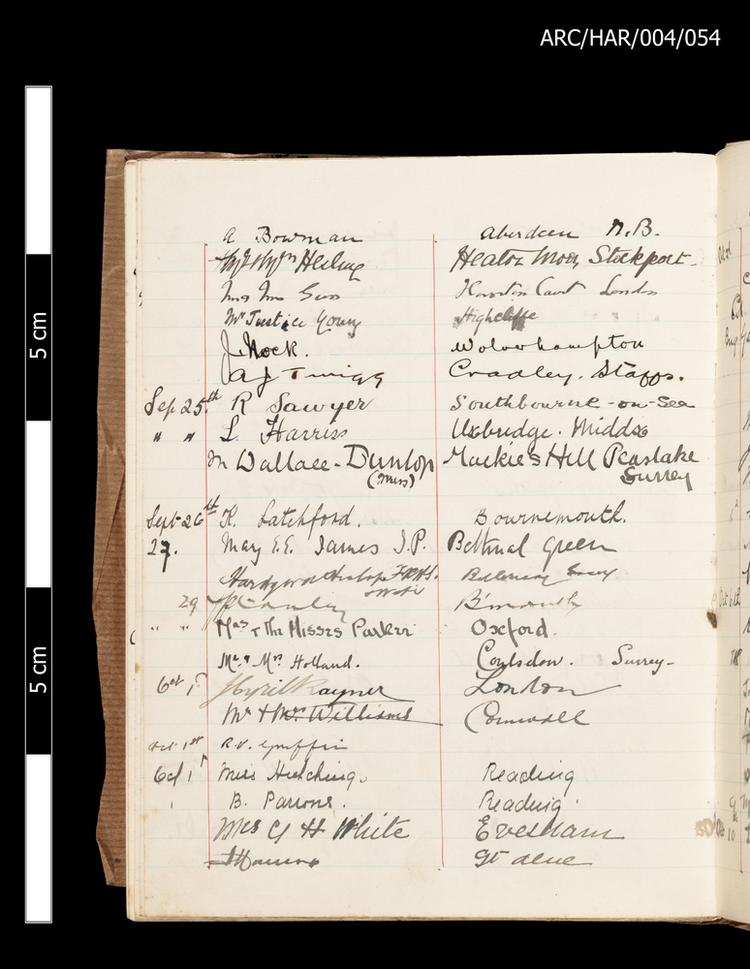 ARC/HAR/004/054
5 cm
5 cm
A Bowman Aberdeen N.B.
Heaton Moor, Stockport.
Court London
Mr Justice Young Highcliffe
J. Nock. Wolverhampton
A J Twigg Cradley. Staffs.
Sep 25th R Sawyer Southbourne-on-Sea
" " L Harris Uxbridge. Middx
M Wallace-Dunlop Mackies Hill Peaslake
(Miss) Surrey
Sept 26st K. Latchford. Bournemouth.
27. May E.E. James J.P. Bethnal Green
29 B'mouth
" " Mrs & The Misses Parker Oxford.
Mr. & Mrs Holland. Coulsdon. Surrey-
Oct 1st J Cyril Rayner London
Mr & Mrs Williams Cornwall
Oct. 1st R.V. Griffin
Oct 1st Miss Hutchings Reading
" B. Parsons. Reading.
Mrs G H White Evesham